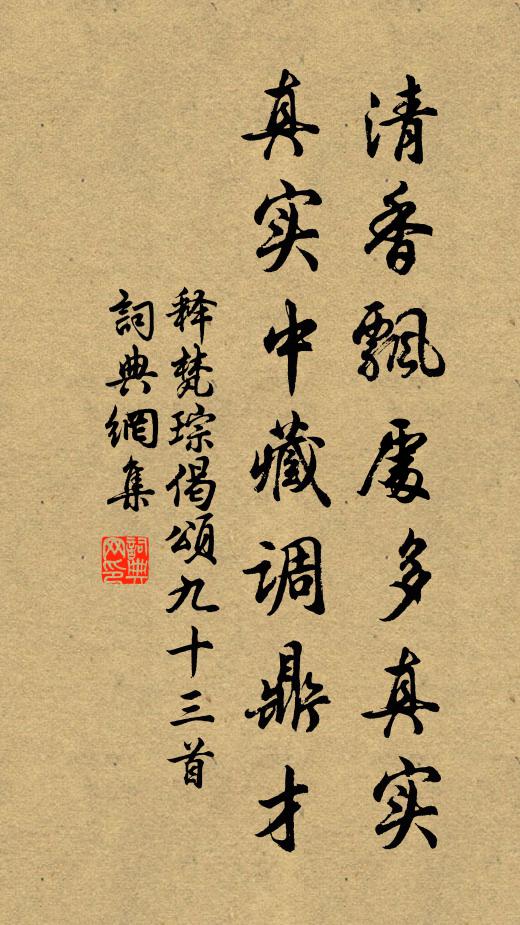 清香飄處多真实
真实中藏调鼎才
释梵琮偈頌九十三首
詞典網集
詞典网印